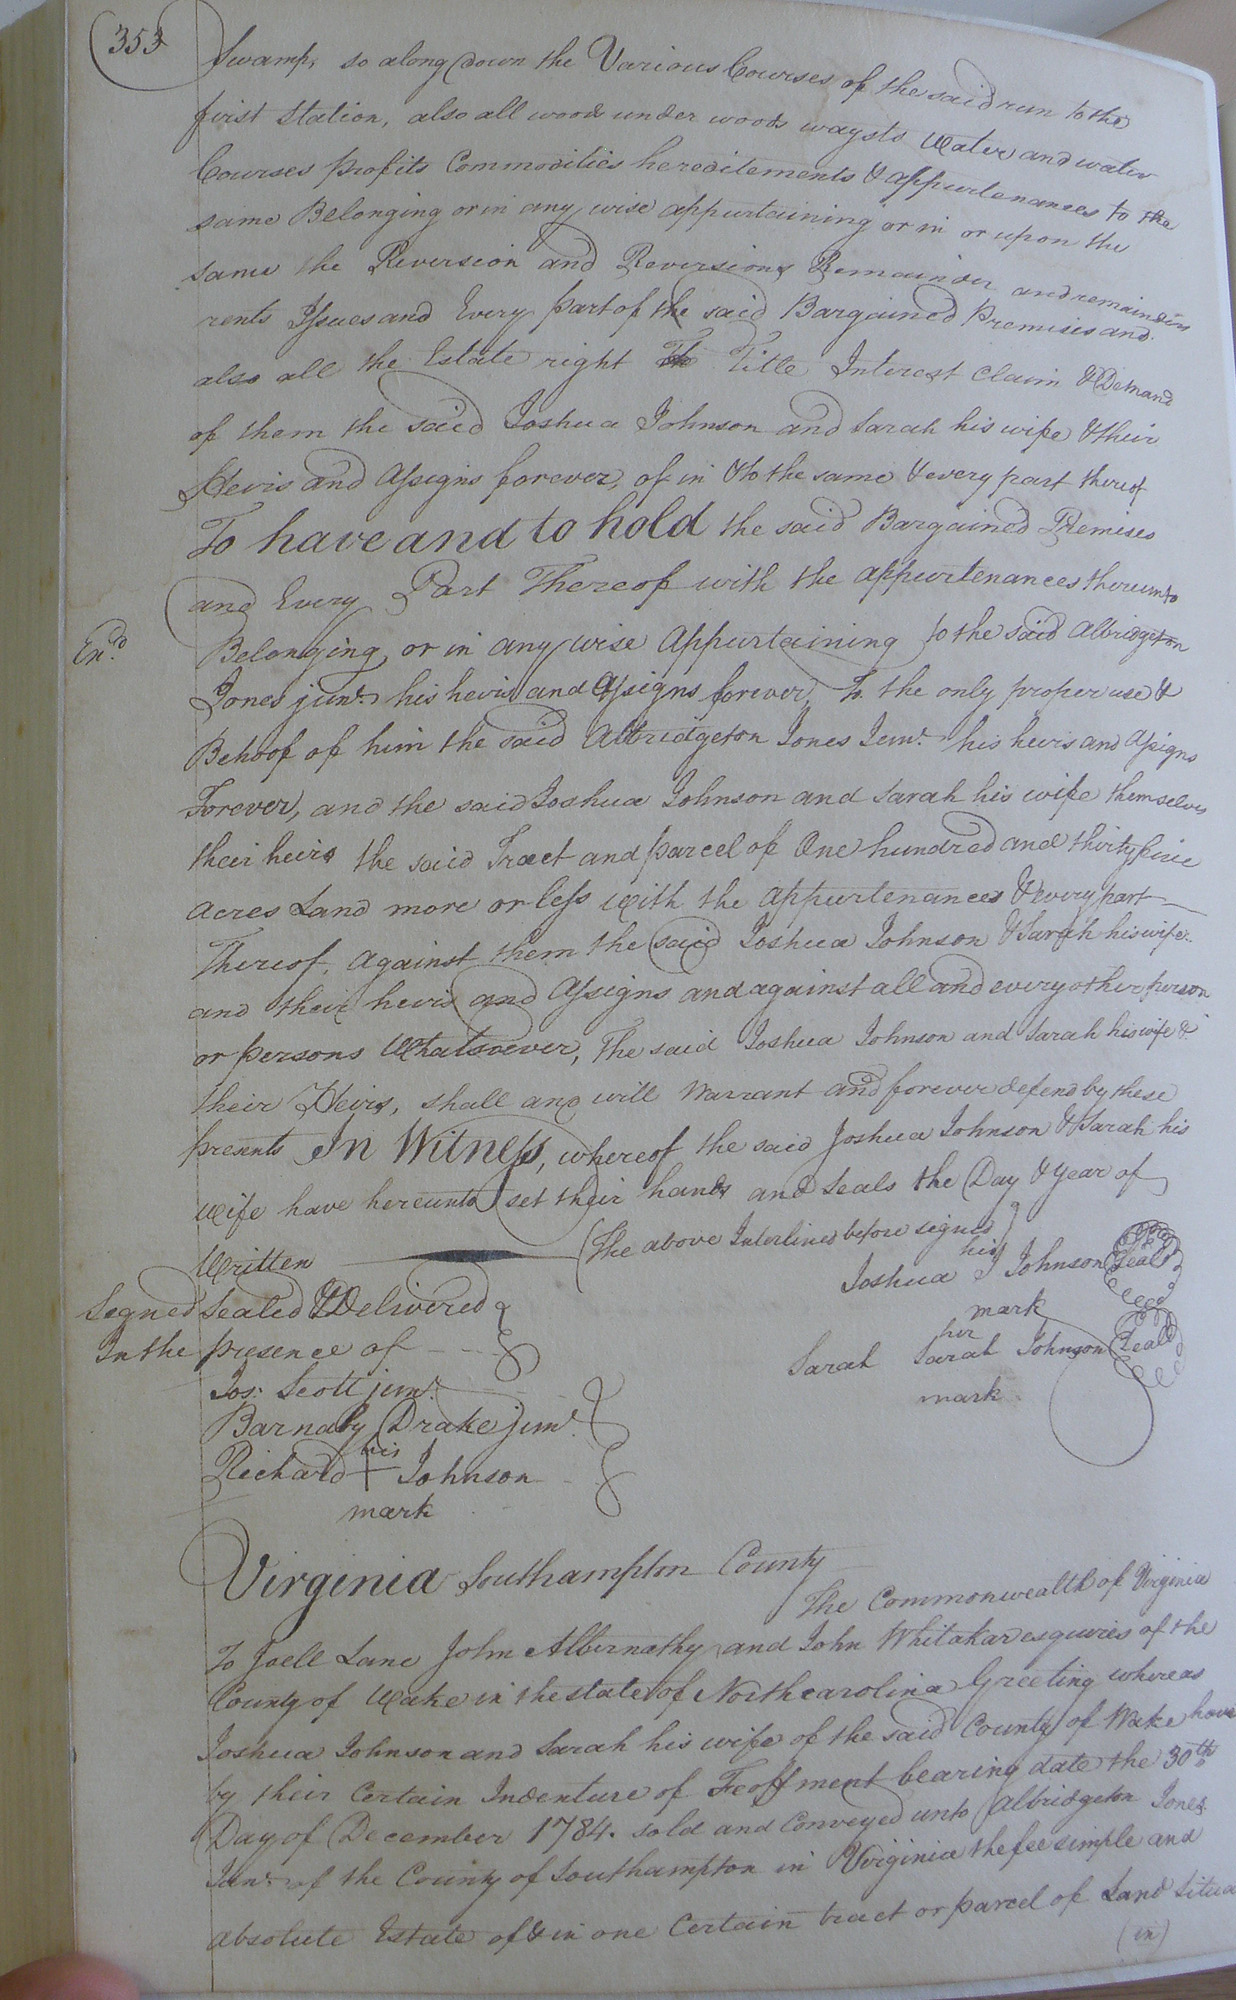 353
Swamp, so along down the Various Courses of the said run to the
first Station, also all woods under woods ways to water and water
Courses profits Commodities hereditements & appurtenances to the
same Belonging or in any wise appurtaining or in or upon the
same the Reversion and Reversions Remainder and remainders
rents Issues and Every part of the said Bargained Premises and
also all the Estate right Title Interest Claim & Demand
of them the said Joshua Johnson and Sarah his wife & their
Heirs and Assigns forever, of in & to the same & every part thereof
To have and to hold the said Bargained Premises
and Every Part Thereof with the appurtenances thereunto
En.d
Belonging or in any wise Appurtaining to the said Albridgeton
Jones jun.r his heirs and Assigns forever, To the only proper use &
Behoof of him the said Albridgeton Jones Jun.r his heirs and Assigns
Forever, and the said Joshua Johnson and Sarah his wife themselves
their heirs the said Tract and parcel of One hundred and thirty five
acres Land more or less with the appurtenances & every part
Thereof, against them the said Joshua Johnson & Sarah his wife
and their heirs and Assigns and against all and every other person
or persons Whatsoever, The said Joshua Johnson and Sarah his wife &
their Heirs, shall and will warrant and forever defend by these
presents In Witness, whereof the said Joshua Johnson & Sarah his
wife have hereunto set their hands and Seals the Day & year of
Written (The above Interlined before signed)
his
Joshua J Johnson Seal
mark
Signed Sealed & Delivered
In the presence of
her
Sarah Sarah Johnson Seal
mark
Jos: Scott jun.r
Barnaby Drake jun.r
his
Richard + Johnson
mark
Virginia Southampton County
The Commonwealth of Virginia
To Joell Lane John Albernathy and John Whitakar esquires of the
County of Wake in the state of North carolina Greeting whereas
Joshua Johnson and Sarah his wife of the said County of Wake have
by their Certain Indenture of Feoffment bearing date the 30th
Day of December 1784. sold and Conveyed unto Albridgeton Jones
Jun.r of the County of Southampton in Virginia the fee simple and
absolute Estate of & in one Certain tract or parcel of Land Situa
(in)